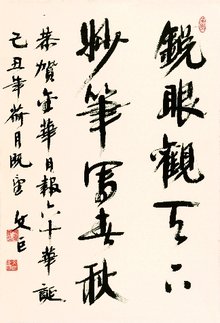 銳眼觀天下
妙筆寫春秋
恭賀金華日報六十華誕
己丑年荷月晚雲文臣